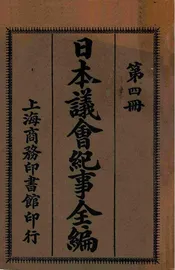 第四冊
日本議會紀事全編
上海商務印書館印行